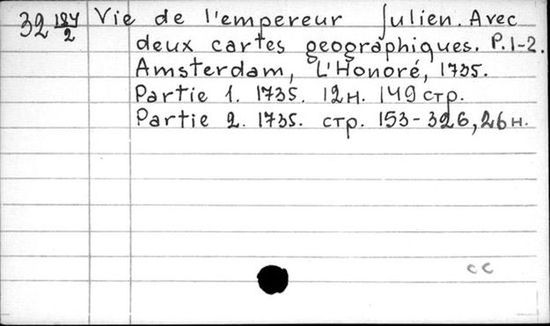 39 187/2 Vie de l'empereur Julien. Avec
deux cartes geographiques. P. 1-2.
Amsterdam, L'Honoré, 1735.
Partie 1. 1735. 12 н. 149 стр.
Partie 2. 1735. стр. 153-326, 26 н.
cc